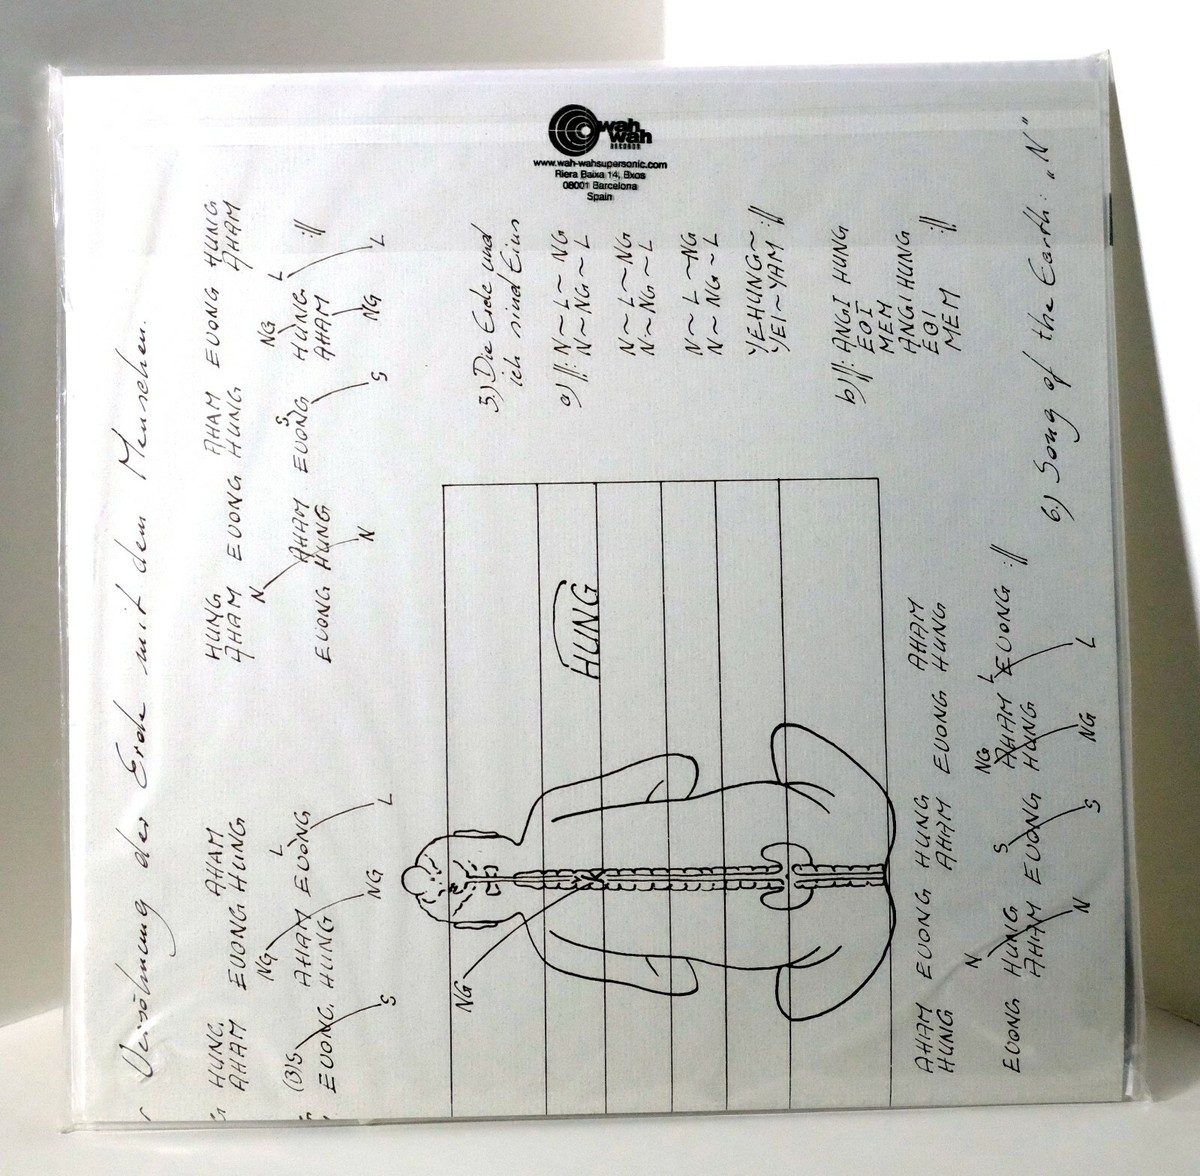 wah
wah
RECORDS
www.wah-wahsupersonic.com
Riera Baixa 14, Bxos
08001 Barcelona
Spain
Versöhnung der Erde mit dem Menschen.
HUNG AHAM HUNG AHAM EUONG HUNG
AHAM EUONG HUNG AHAM EUONG HUNG AHAM
NG L N NG L
(B)S AHAM EUONG AHAM EUONG HUNG ://
EUONG HUNG EUONG HUNG AHAM
S NG L N S NG L
5) Die Erde und
ich sind Eins
a) //: N~L~NG
N~NG~L
N~L~NG
N~NG~L
N~L~NG
N~NG~L
YEHUNG~
YEI~YAM ://
b) //: ANGI HUNG
EOI
MEM
ANGI HUNG
EOI
MEM ://
HUNG
NG
AHAM EUONG HUNG EUONG AHAM
HUNG AHAM HUNG
N S NG L
EUONG HUNG EUONG AHAM EUONG ://
AHAM HUNG HUNG
N S NG L
6.) Song of the Earth: „N"